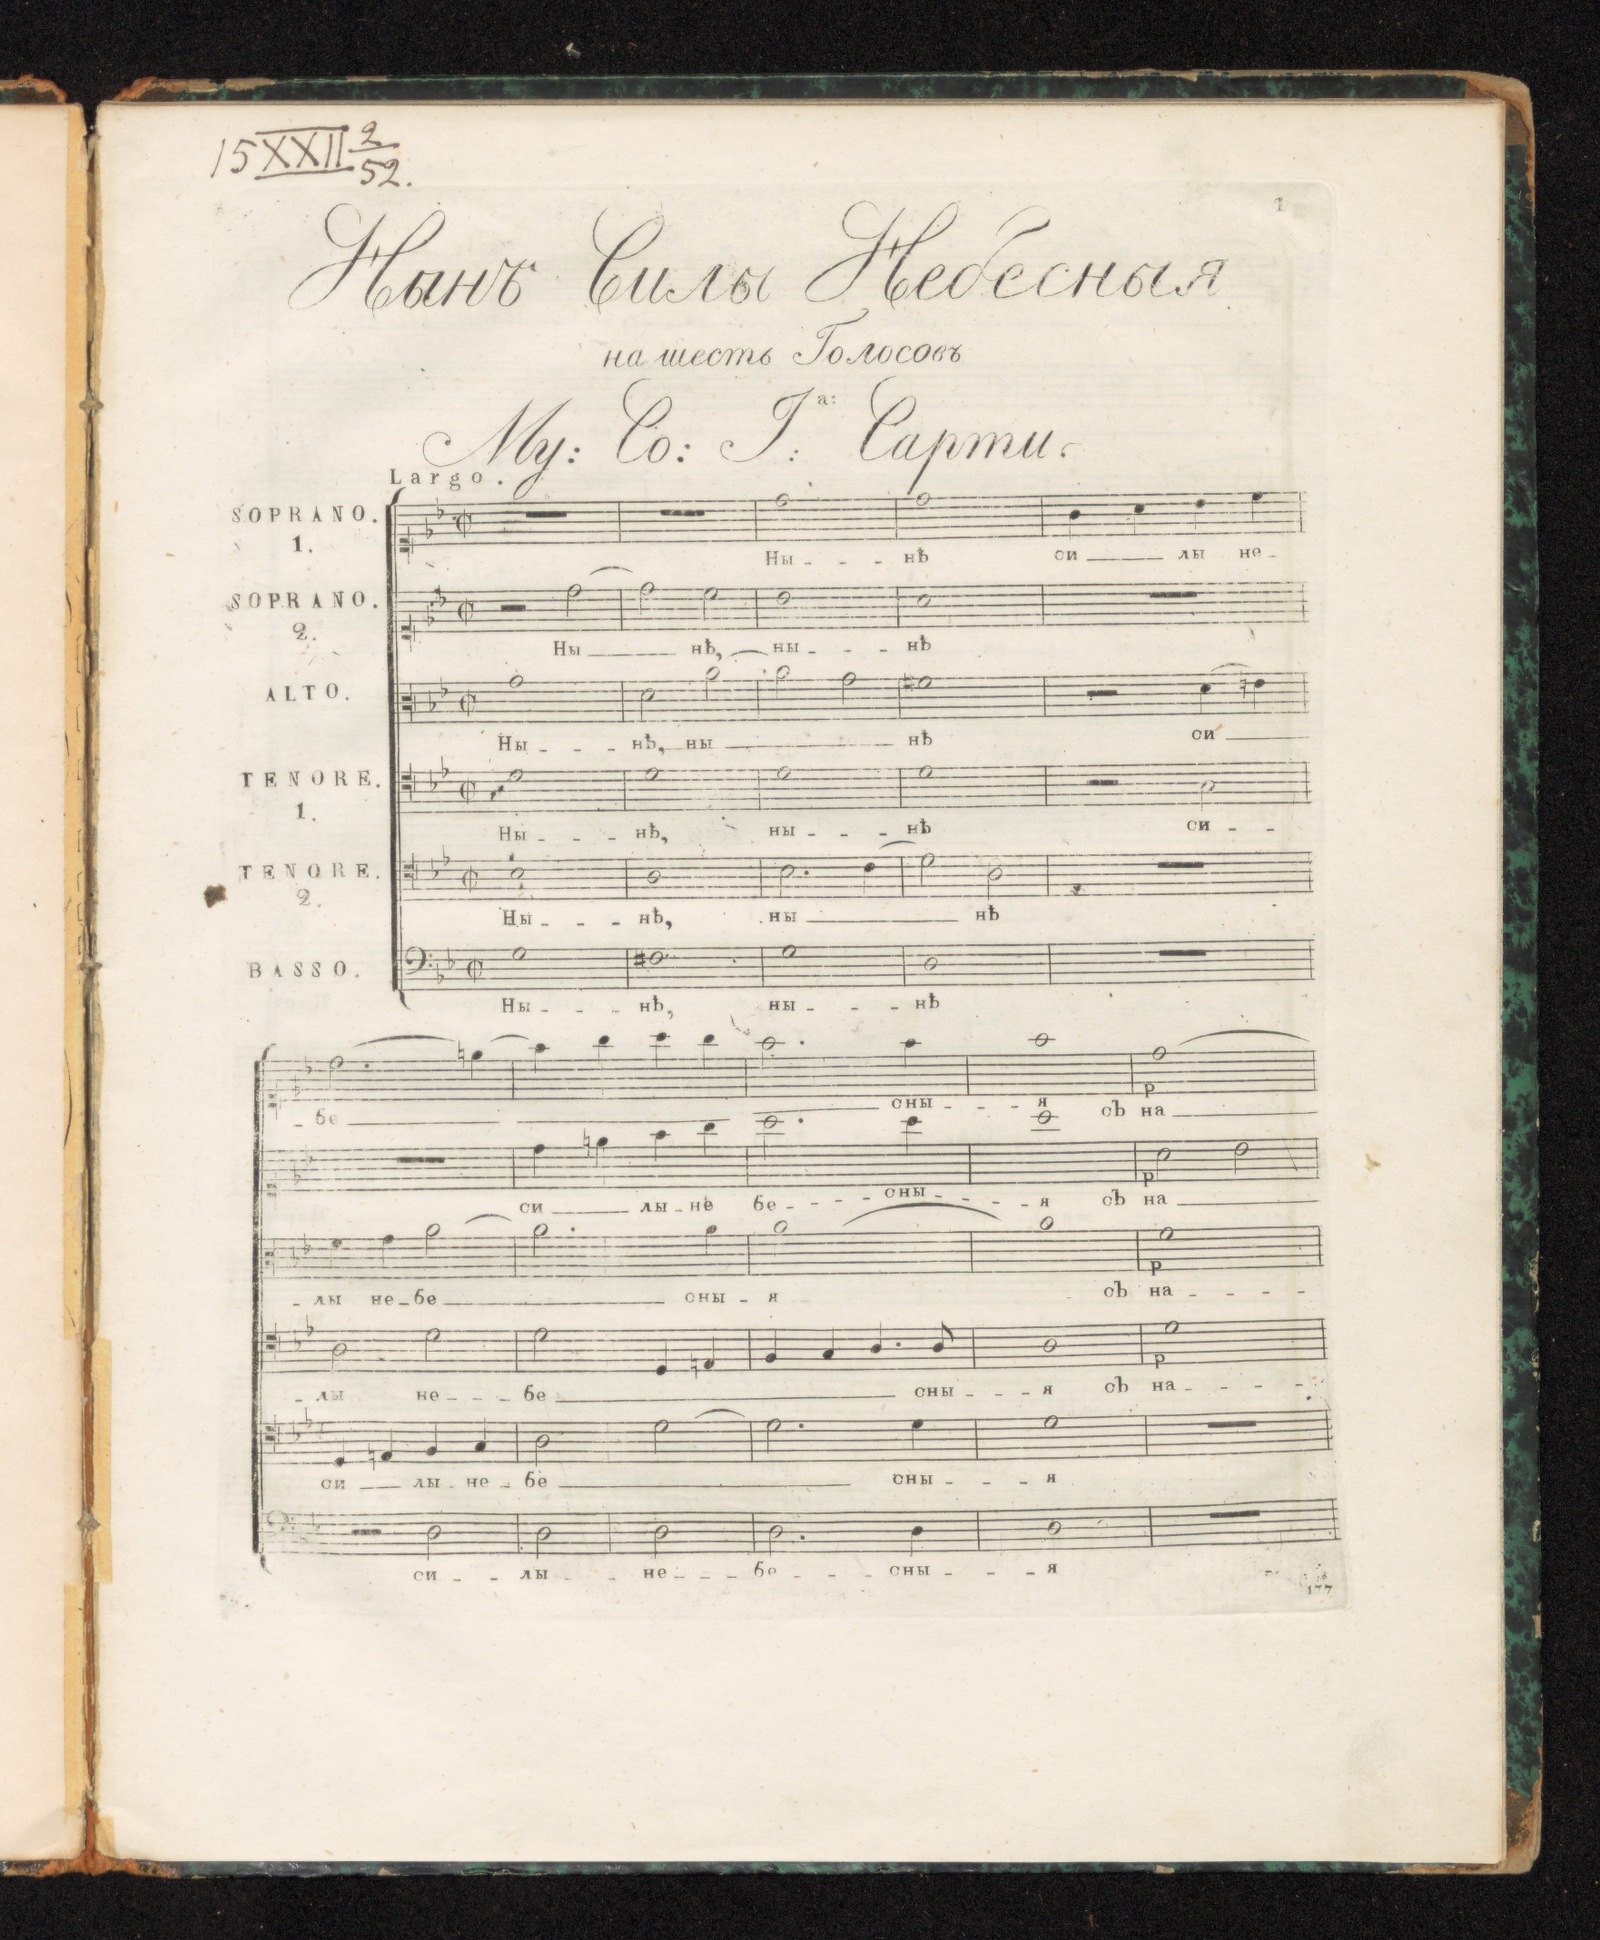 15 XXII 2/52.
1
Нынѣ Силы Небесныя
на шесть Голосовъ
Му: Со: Га: Сарти.
Largo.
SOPRANO. 1.
Ны - - - нѣ си лы не -
SOPRANO. 2.
Ны нѣ, ны - - - нѣ
ALTO.
Ны - - - нѣ, ны нѣ си
TENORE. 1.
Ны - - - нѣ, ны - - - нѣ си - -
TENORE. 2.
Ны - - - нѣ, ны нѣ
BASSO.
Ны - - - нѣ, ны - - - нѣ
- бе сны - - - я съ на
p
си лы - не бе - - - - сны - - - - я съ на
p
- лы не - бе сны - я съ на - - - -
p
- лы не - - - бе сны - - - я съ на - - - -
p
си лы - не - бе сны - - - я
си - - лы - - не - - - бе - - - сны - - - я
177